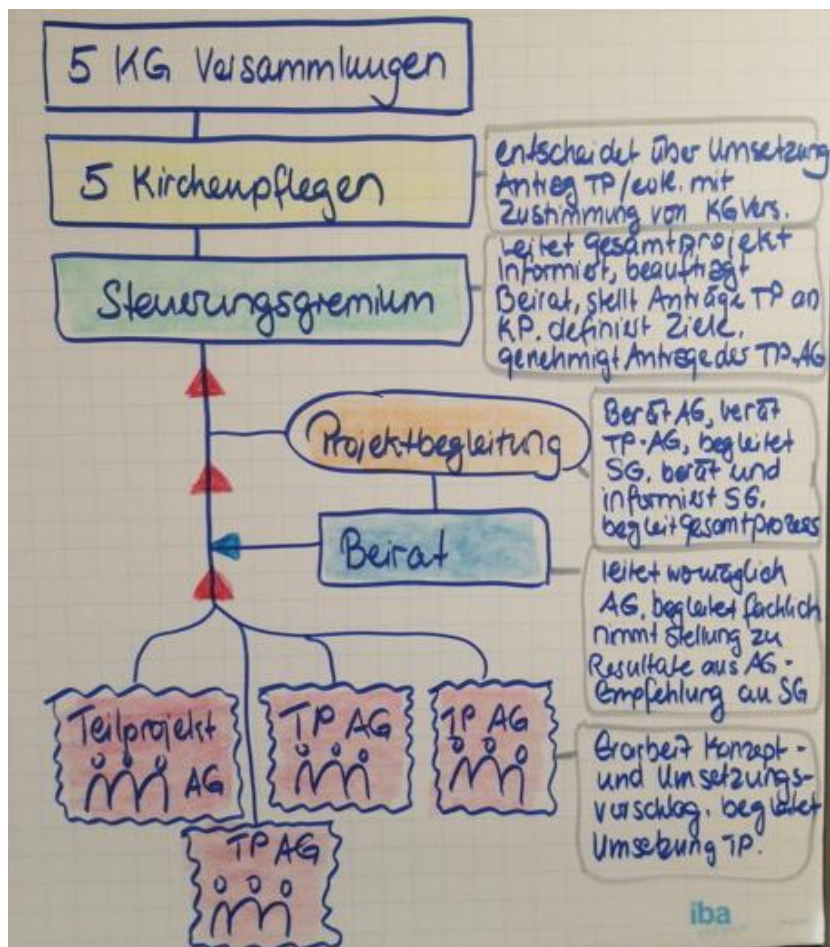 5 KG Versammlungen
5 Kirchenpflegen
entscheidet über Umsetzung
Antrag TP / evtl. mit
Zustimmung von KG Vers.
Steuerungsgremium
Leitet Gesamtprojekt
Informiert, beauftragt
Beirat, stellt Anträge TP an
KP. definiert Ziele,
genehmigt Anträge der TP.AG
Projektbegleitung
Berät AG, berät
TP-AG, begleitet
SG, berät und
informiert SG,
begleit Gesamtprozess
Beirat
leitet womöglich
AG, begleitet fachlich
nimmt Stellung zu
Resultate aus AG -
Empfehlung an SG
Teilprojekt
AG
TP AG
TP AG
TP AG
Erarbeit Konzept -
und Umsetzungs-
vorschlag, begleitet
Umsetzung TP.
iba